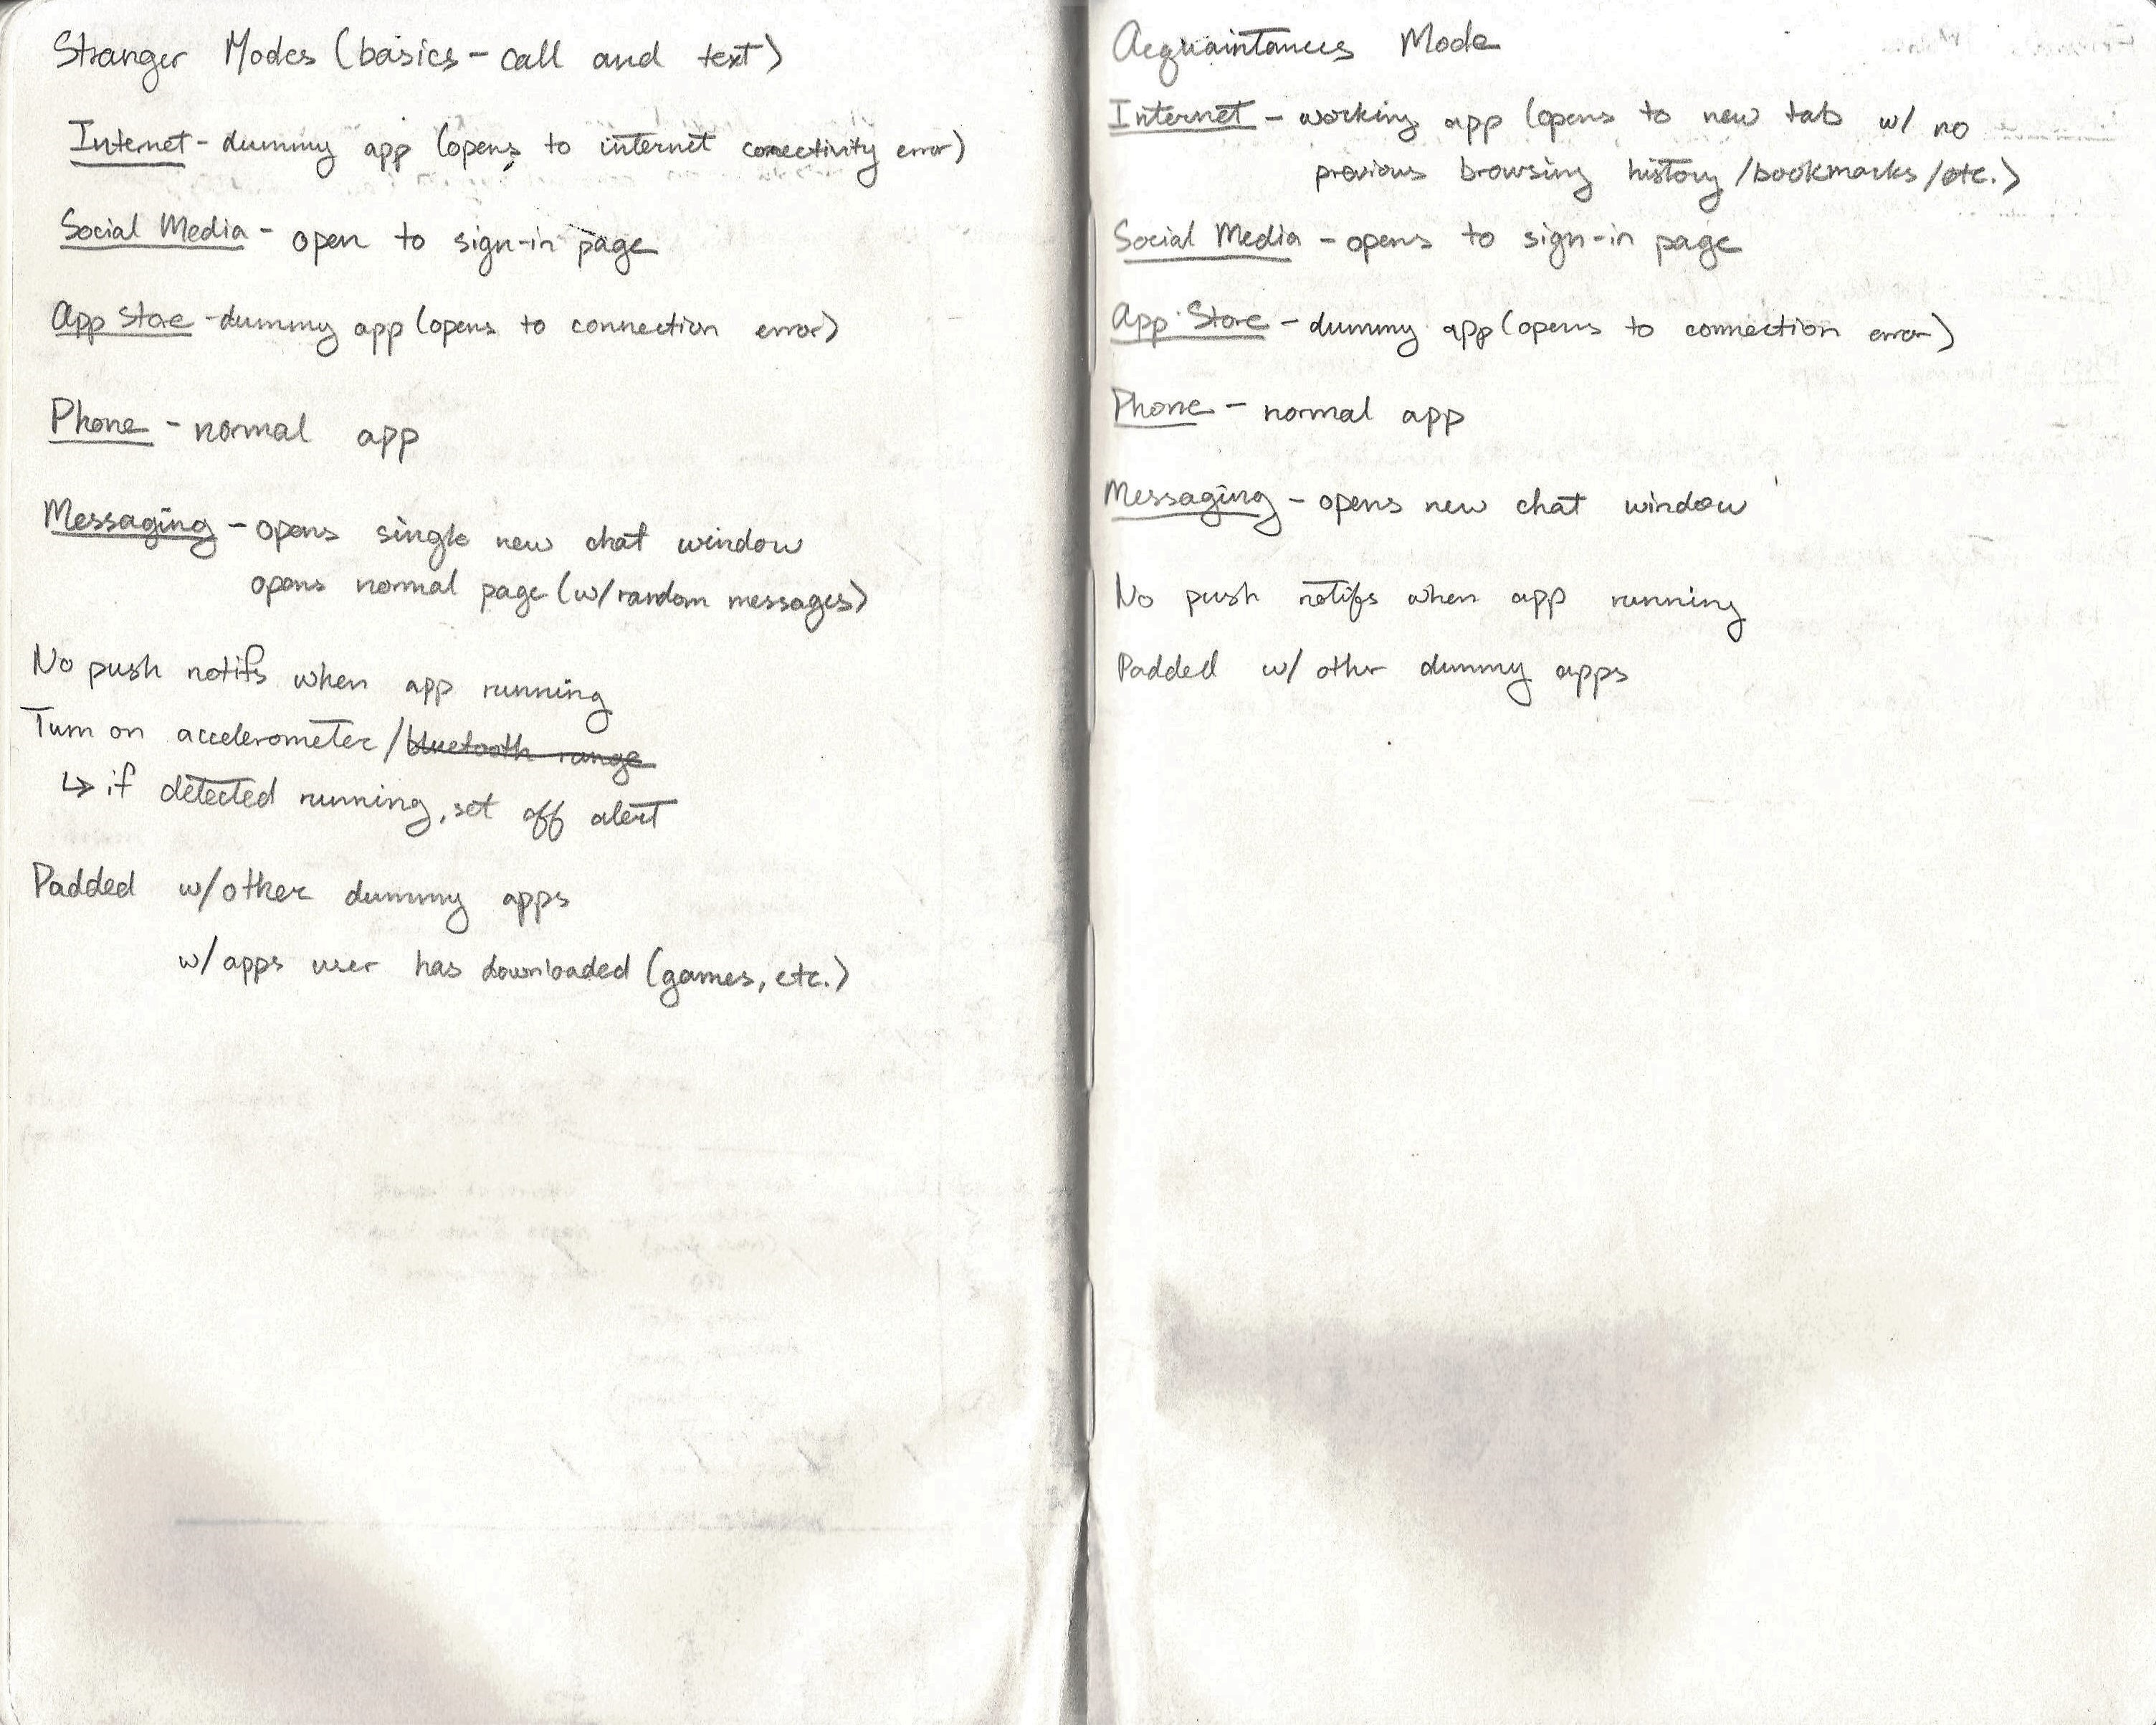 Stranger Modes (basics - call and text)
Internet - dummy app (opens to internet connectivity error)
Social Media - open to sign-in page
App Store - dummy app (opens to connection error)
Phone - normal app
Messaging - opens single new chat window
opens normal page (w/random messages)
No push notifs when app running
Turn on accelerometer/bluetooth range
↳ if detected running, set off alert
Padded w/other dummy apps
w/apps user has downloaded (games, etc.)
Acquaintances Mode
Internet - working app (opens to new tab w/ no
previous browsing history/bookmarks/etc.)
Social Media - opens to sign-in page
App Store - dummy app (opens to connection error)
Phone - normal app
Messaging - opens new chat window
No push notifs when app running
Padded w/ other dummy apps